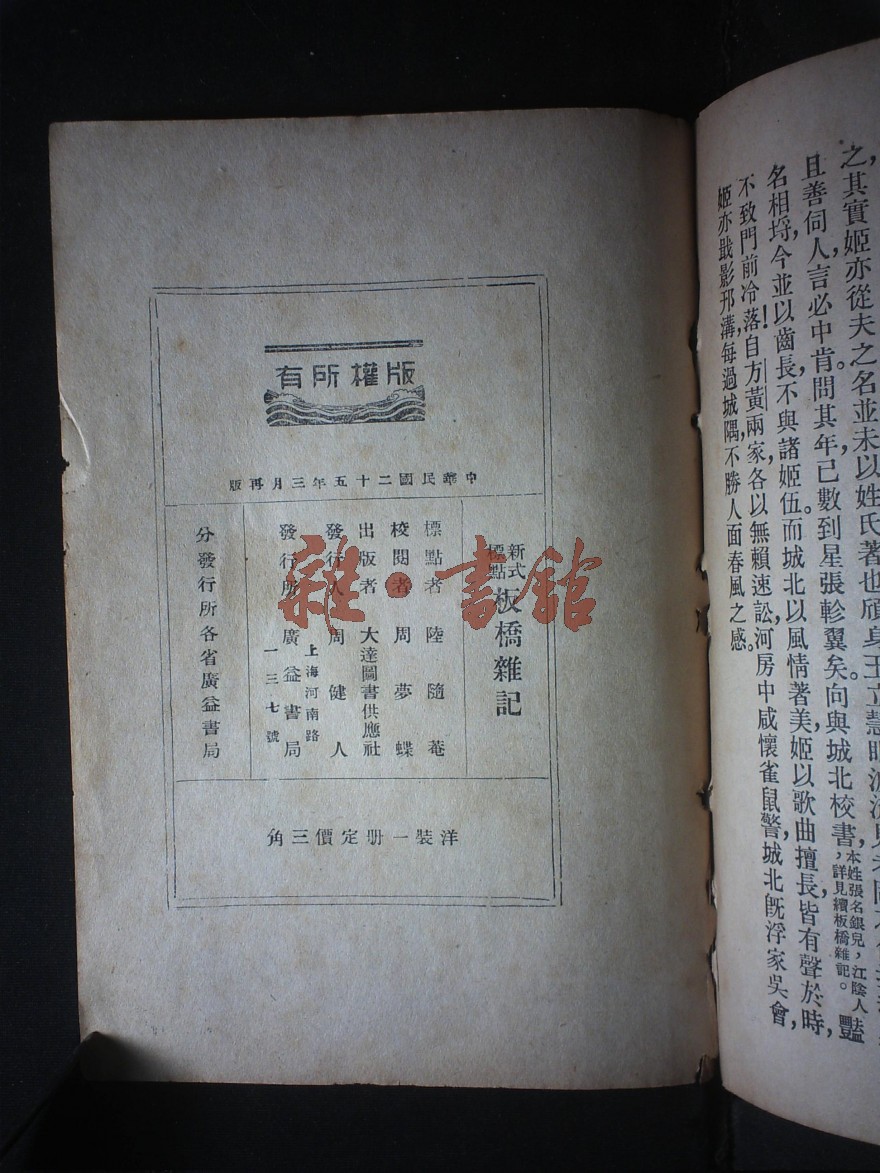 之其實姬亦從夫之名並未以姓氏著也頎身玉立慧眼
且善伺人言必中肯。問其年已數到星張軫翼矣。向與城北校書,本姓張名銀兒,江陰人,詳見續板橋雜記。豔
名相埒,今並以齒長,不與諸姬伍。而城北以風情著,美姬以歌曲擅長,皆有聲於時,
不致門前冷落!自方黃兩家,各以無賴速訟,河房中咸懷雀鼠警,城北旣浮家吳會,
姬亦戢影邗溝,每過城隅,不勝人面春風之感。
版權所有
中華民國二十五年三月再版
新式標點 板橋雜記
標點者 陸隨菴
校閱者 周夢蝶
出版者 大達圖書供應社
發行人 周健人
上海河南路
發行所 廣益書局
一三七號
分發行所各省廣益書局
洋裝一册定價三角
雜·書館